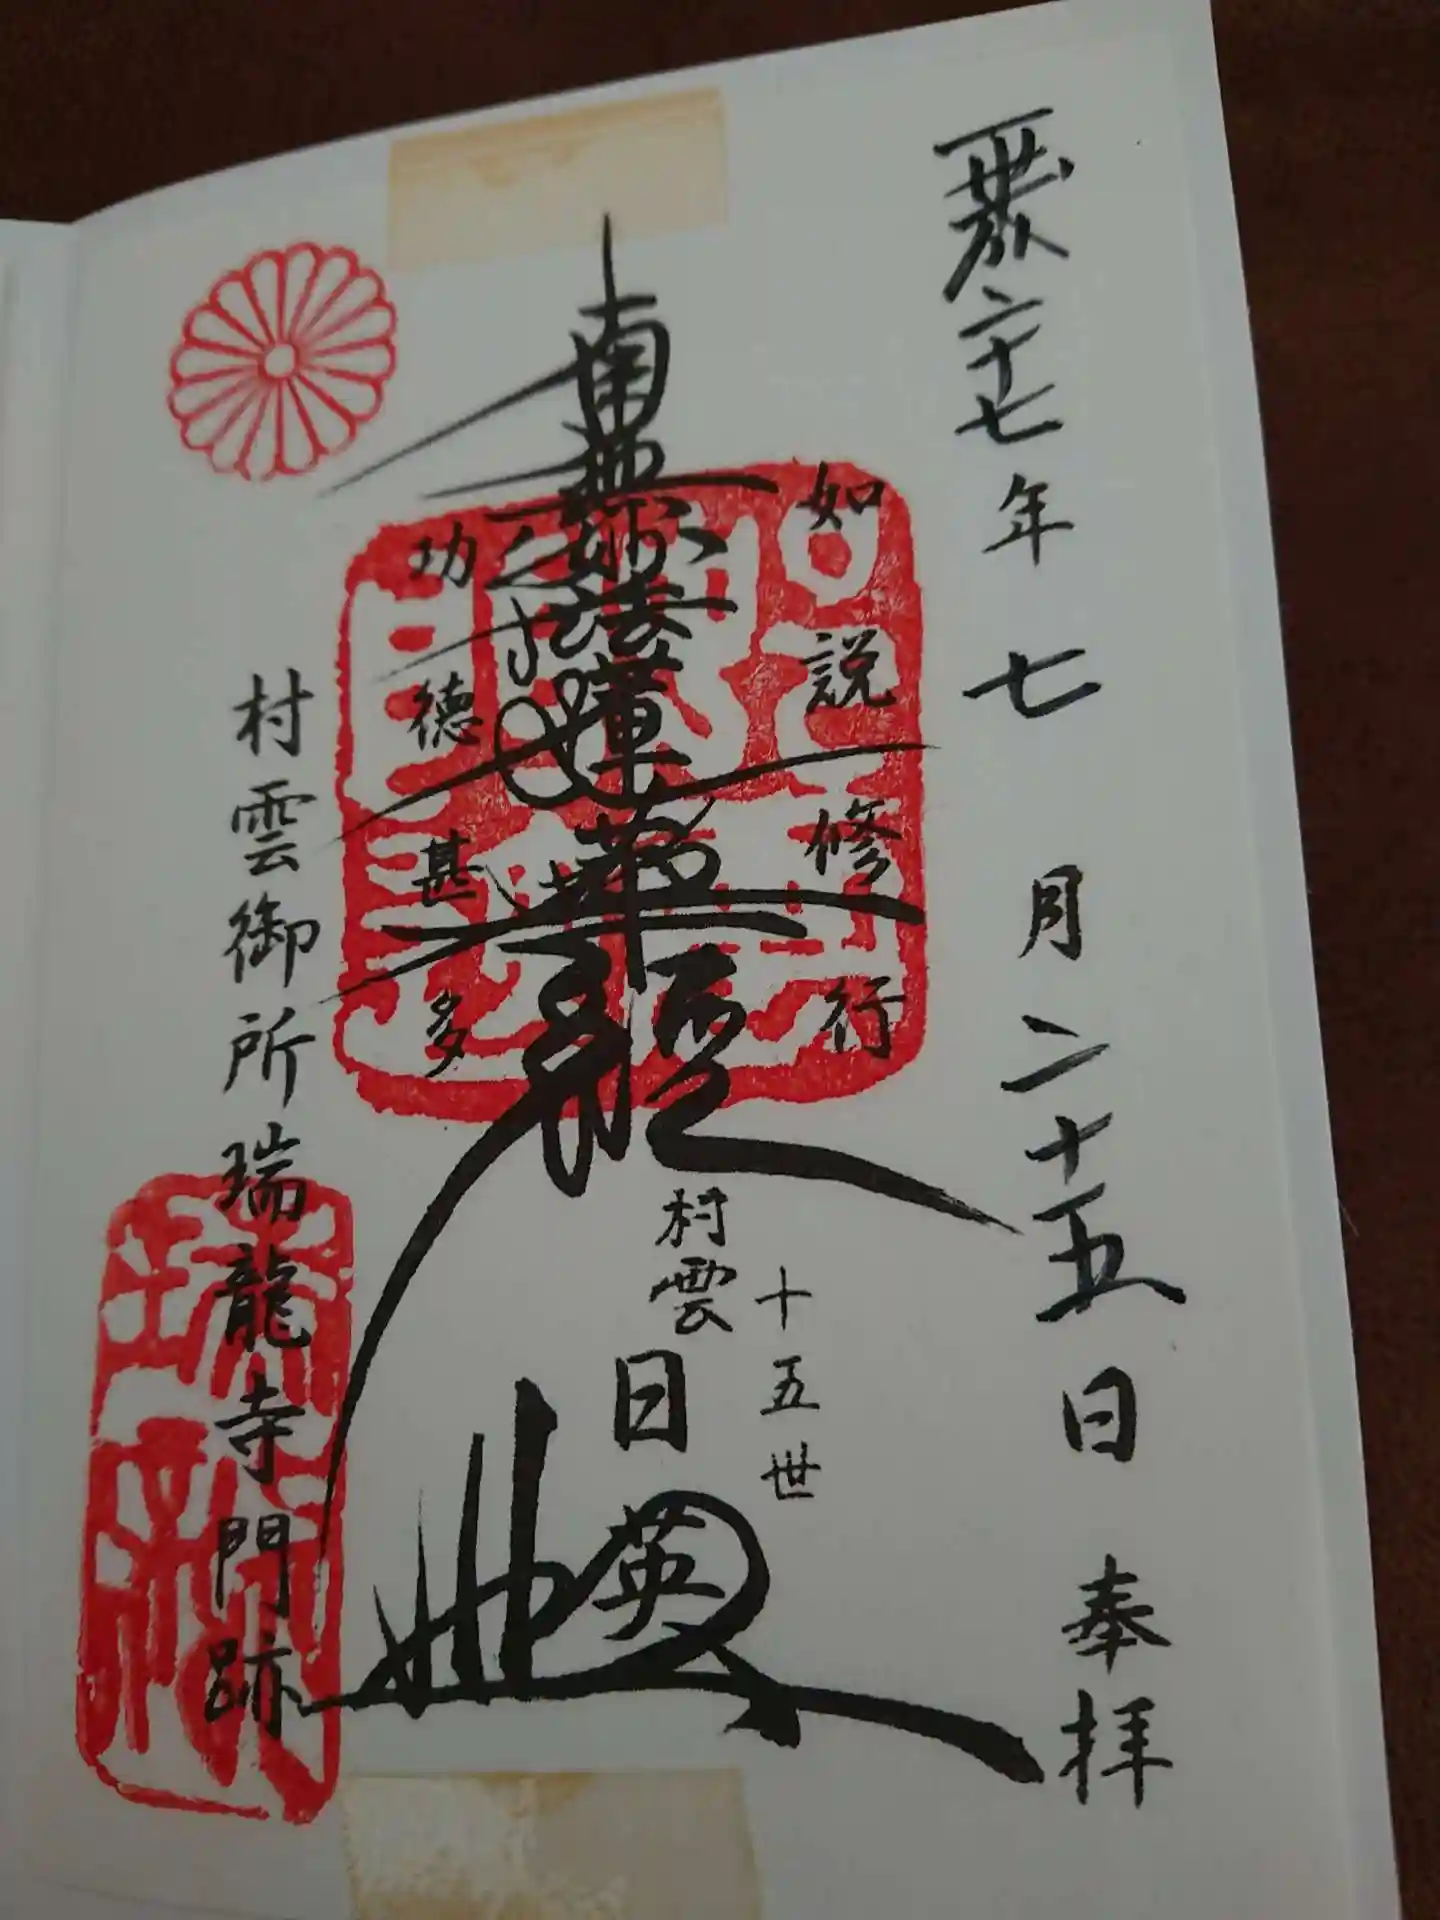 二十七年七月二十五日奉拝
如説修行
南無妙法蓮華経
功徳甚多
十五世
村雲日英
村雲御所瑞龍寺門跡